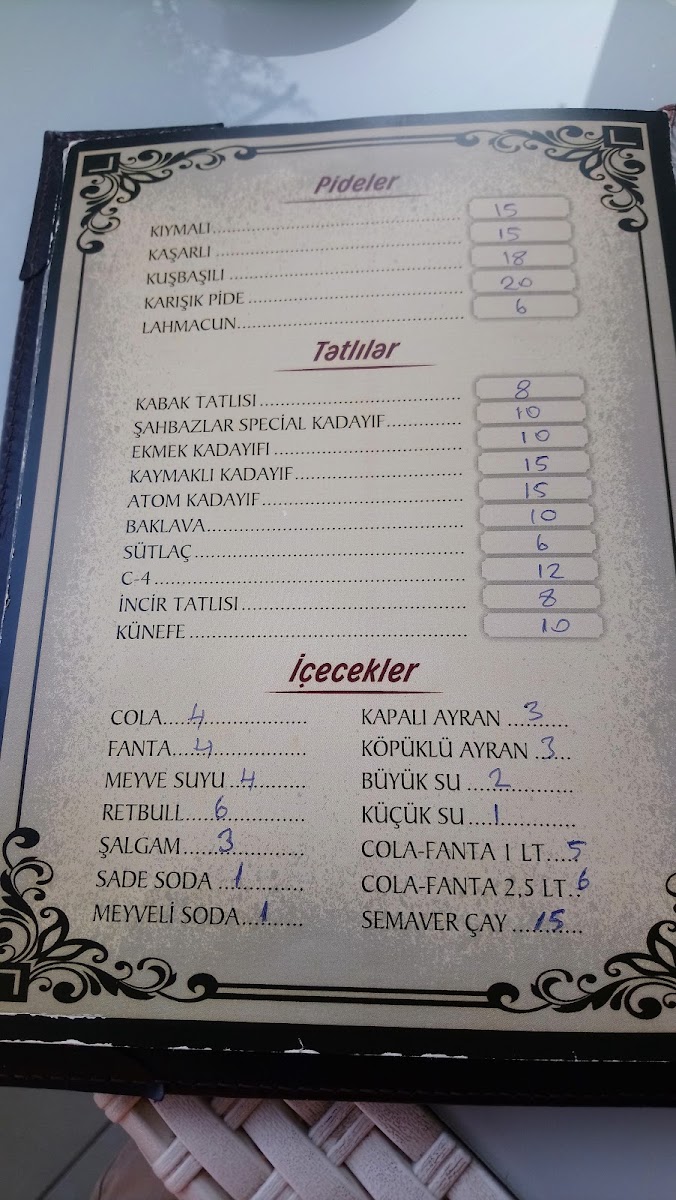 Pideler
KIYMALI.......... 15
KAŞARLI .......... 15
KUŞBAŞILI .......... 18
KARIŞIK PİDE .......... 20
LAHMACUN.......... 6
Tətlılər
KABAK TATLISI .......... 8
ŞAHBAZLAR SPECİAL KADAYIF.......... 10
EKMEK KADAYIFI .......... 10
KAYMAKLI KADAYIF.......... 15
ATOM KADAYIF.......... 15
BAKLAVA.......... 10
SÜTLAÇ .......... 6
C-4 .......... 12
İNCİR TATLISI .......... 8
KÜNEFE .......... 10
İçecekler
COLA.... 4 ..........
FANTA.... 4 ..........
MEYVE SUYU .. 4 ..........
RETBULL.... 6 ..........
ŞALGAM.... 3 ..........
SADE SODA .. 1 ..........
MEYVELİ SODA.. 1 ..........
KAPALI AYRAN .. 3 ..........
KÖPÜKLÜ AYRAN .... 3 ...
BÜYÜK SU ... 2 ..........
KÜÇÜK SU ... 1 ..........
COLA-FANTA 1 LT.... 5
COLA-FANTA 2,5 LT.. 6
SEMAVER ÇAY ... 15 ......